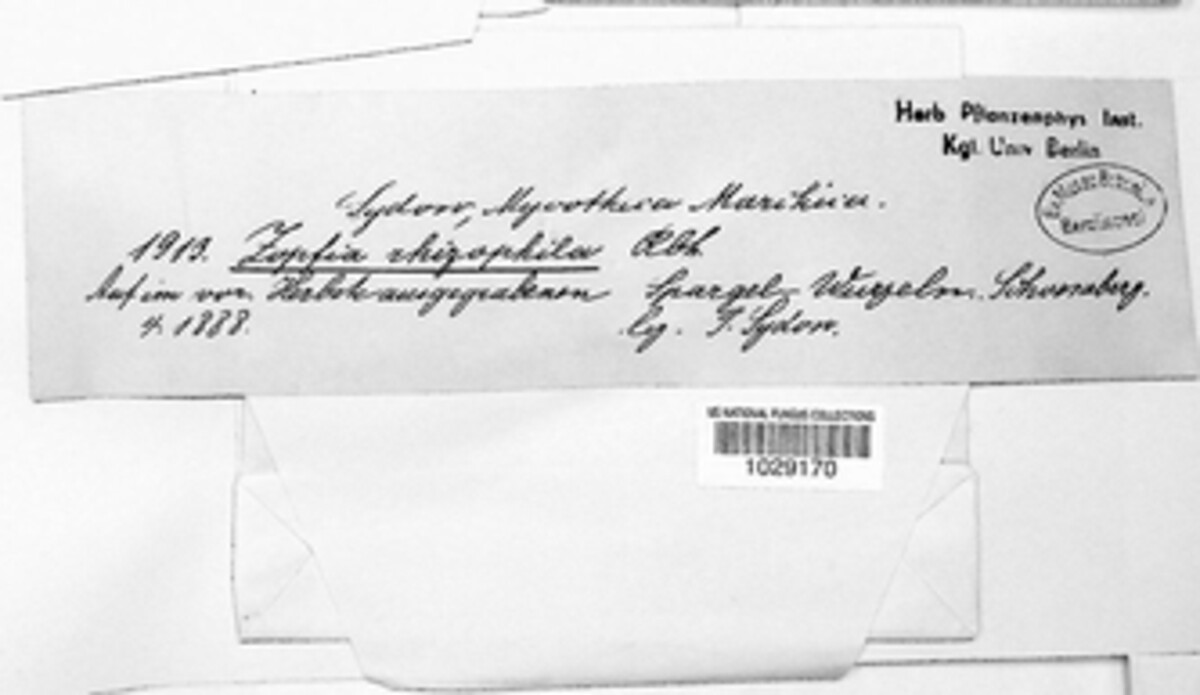 Herb Pflanzenphys Inst.
Kgl. Univ Berlin
Ex Museo Botanico
Berolinensi
Sydow, Mycotheca Marchica.
1913. Zopfia rhizophila Rbh.
Auf im vor. Herbste ausgegrabenen Spargel-Wurzeln. Schöneberg.
4. 1888. lg. P. Sydow.
US NATIONAL FUNGUS COLLECTIONS
1029170